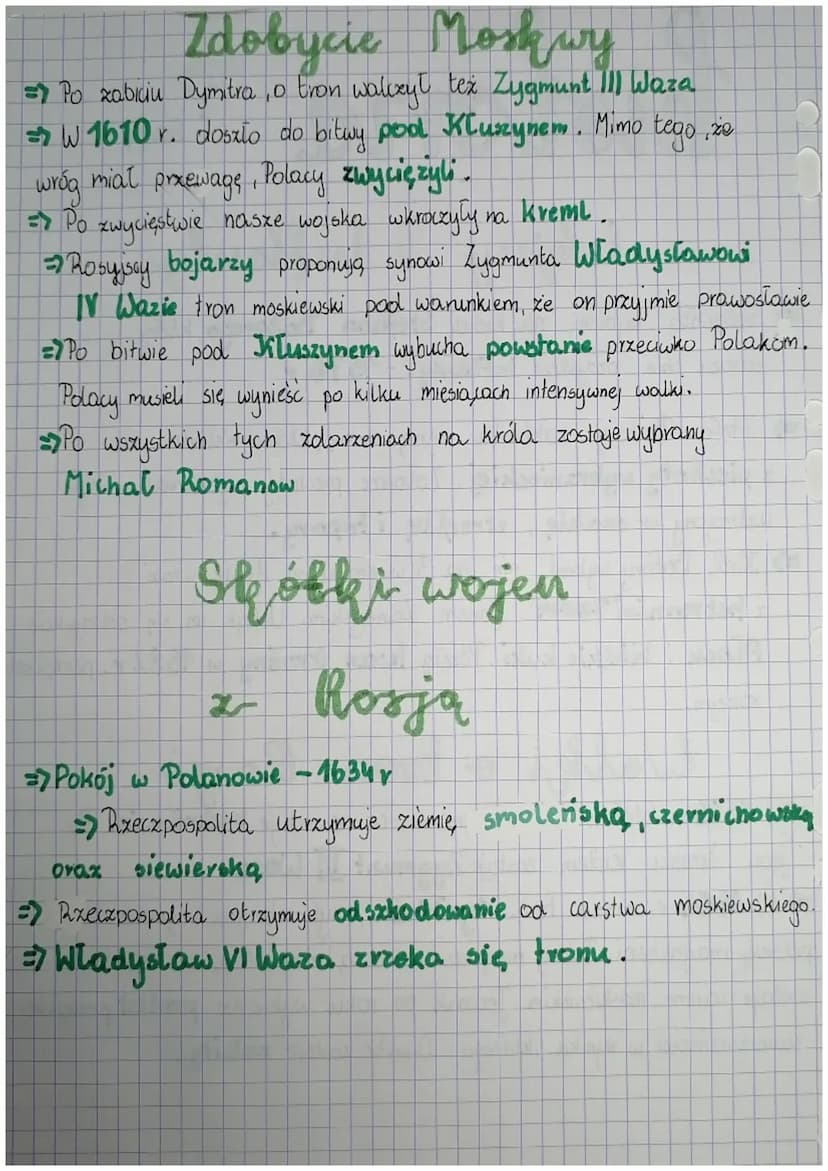 Zdobycie Moskwy
=> Po zabiciu Dymitra, o tron walczył też Zygmunt III Waza
=> W 1610 r. doszło do bitwy pod Kłuszynem. Mimo tego, że
wróg miał przewagę, Polacy zwyciężyli.
=> Po zwycięstwie nasze wojska wkroczyły na Kreml.
=> Rosyjscy bojarzy proponują synowi Zygmunta Władysławowi
IV Wazie tron moskiewski pod warunkiem, że on przyjmie prawosławie
=> Po bitwie pod Kłuszynem wybucha powstanie przeciwko Polakom.
Polacy musieli się wynieść po kilku miesiącach intensywnej walki.
=> Po wszystkich tych zdarzeniach na króla zostaje wybrany
Michał Romanow
Skótki wojen
z Rosją
=> Pokój w Polanowie - 1634 r
=> Rzeczpospolita utrzymuje ziemię smoleńską, czernichowską
oraz siewierską
=> Rzeczpospolita otrzymuje odszkodowanie od carstwa moskiewskiego.
=> Władysław VI Waza zrzeka się tronu.